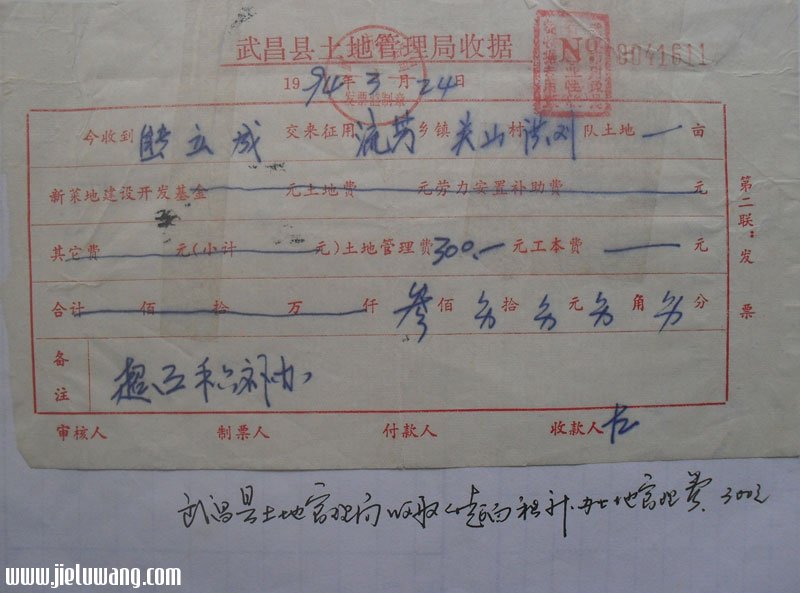 武昌县土地管理局收据
No 8041611
1994年3月24日
发票监制章
今收到 熊立成 交来征用 流芳 乡镇 关山 村 洪刘 队土地 一 亩
新菜地建设开发基金 元土地费 元劳力安置补助费 元
其它费 元(小计 元)土地管理费 300.— 元工本费 — 元
合计 佰 拾 万 仟 叁 佰 另 拾 另 元 另 角 另 分
备注 超面积补办
审核人 制票人 付款人 收款人
第二联:发票
武昌县土地管理局收取超面积补办土地管理费300元
www.jieluwang.com